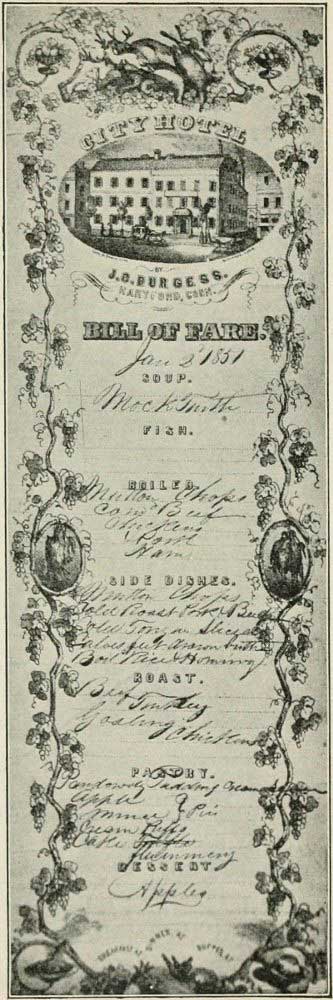 CITY HOTEL
BY
J. C. BURGESS.
HARTFORD, CONN.
BILL OF FARE.
Jan 2 1851
SOUP.
Mock Turtle
FISH.
BOILED
Mutton Chops
Corn'd Beef
Chickens
Pork
Ham
SIDE DISHES.
Mutton Chops
Cold Roast Pork & Beef
Cold Tongue Sliced
Calves feet
Boil Rice & Hominy
ROAST.
Beef Turkey
Gosling
Chicken
PASTRY.
Pandowdy Pudding Cream
Apple
Mince } Pie
Cream
Cake
DESSERT
Apples
BREAKFAST AT DINNER AT SUPPER AT